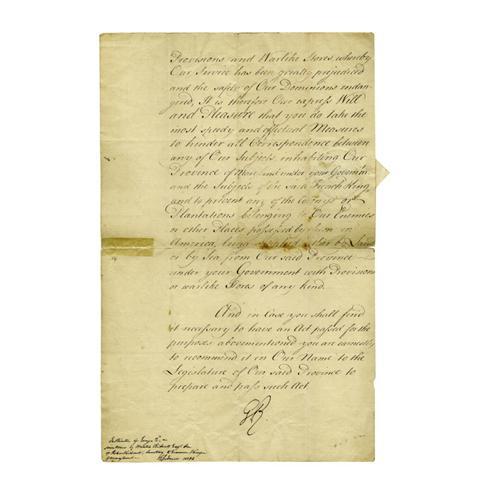 Provisions and Warlike Stores, whereby
Our Service has been greatly prejudiced
and the safety of Our Dominions endan-
gered, It is therefore Our express Will
and Pleasure that you do take the
most speedy and effectual Measures
to hinder all Correspondence between
any of Our Subjects inhabiting Our
Province of Maryland under your Government
and the Subjects of the said French King,
and to prevent any of the Colonys or
Plantations belonging to Our Enemies
or other Places possessed by them in
America, being supplied either by Land
or by Sea from Our said Province
under your Government with Provisions
or warlike Stores of any kind.
And in Case you shall find
it necessary to have an Act passed for the
purposes abovementioned you are earnestly
to recommend it in Our Name to the
Legislature of Our said Province to
prepare and pass such Act.
GR